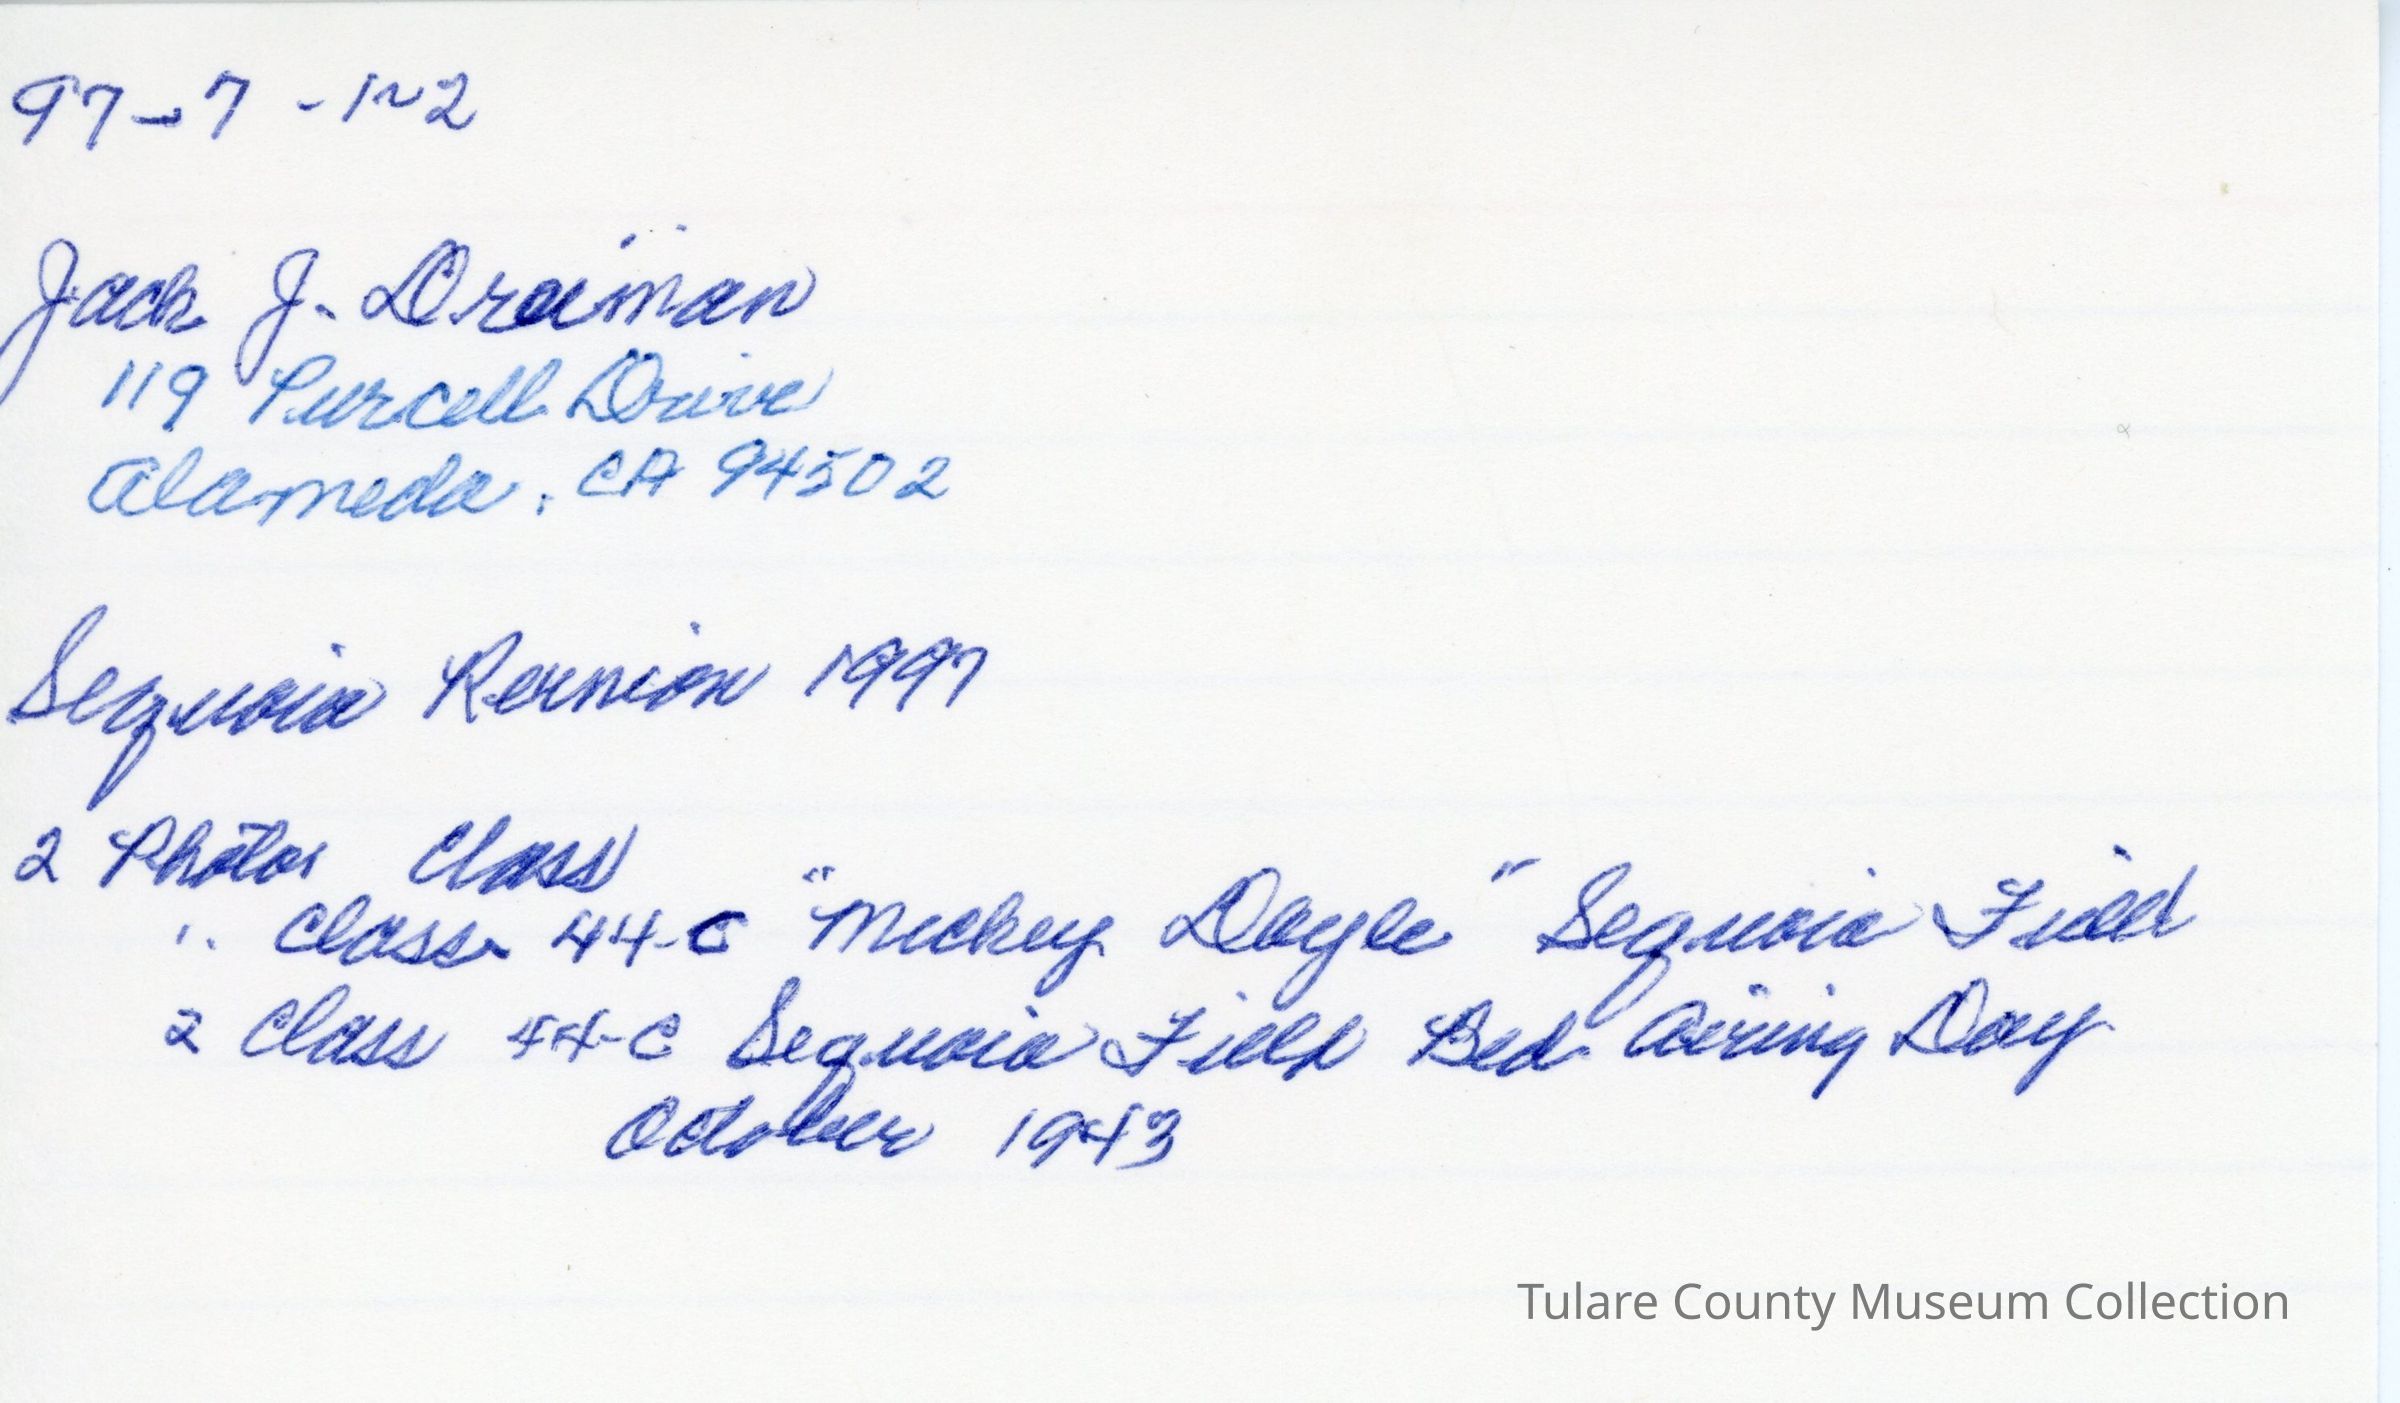 97-7-1~2
Jack J. Draiman
119 Purcell Drive
Alameda, CA 94502
Sequoia Reunion 1997
2 Photos Class
1. Class 44-C "Mickey Doyle" Sequoia Field
2 Class 44-C Sequoia Field Bed Airing Day
October 1943
Tulare County Museum Collection